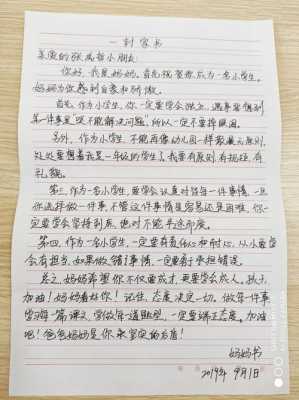 一封家书
亲爱的张禹哲小朋友:
你好,我是妈妈。首先祝贺你成为一名小学生。
妈妈为你感到自豪和骄傲。
首先,作为小学生,你一定要学会独立,遇事要想到
第一件事是"哭不能解决问题",所以一定不要掉眼泪。
另外,作为小学生,不能再像幼儿园一样散漫无原则,
处处要想着我是一年级的学生了,我要有原则,有规矩,有
礼貌。
第三,作为一名小学生,要学会认真对待每一件事情,一旦
你选择做一件事,不管这件事情是容易还是困难,你一
定要学会坚持到底,绝对不能半途而废。
第四,作为一名小学生,一定要有责任心和耐心,从小要学
会有担当,如果做错了事情,一定要勇于承担错误。
总之,妈妈希望你不仅要成才,更要学会成人。孩子,
加油!妈妈看好你!记住,态度决定一切。做每一件事
学习每一篇课文,学做每一道题型,一定要端正态度。加油
吧!爸爸妈妈是你永坚定的后盾!
妈妈书
2019年9月1日